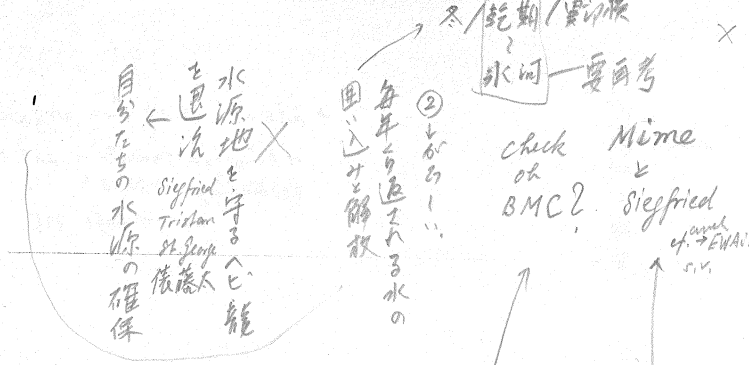 冬/乾期/
氷河 — 要再考
Mime
と
Siegfried
cf.
s.v.
check
on
BMC?
②
毎年くり返される水の
囲い込みと解放
水源地を守るヘビ/龍
を退治
Siegfried
Tristan
St. George
俵藤太
自分たちの水源の確保